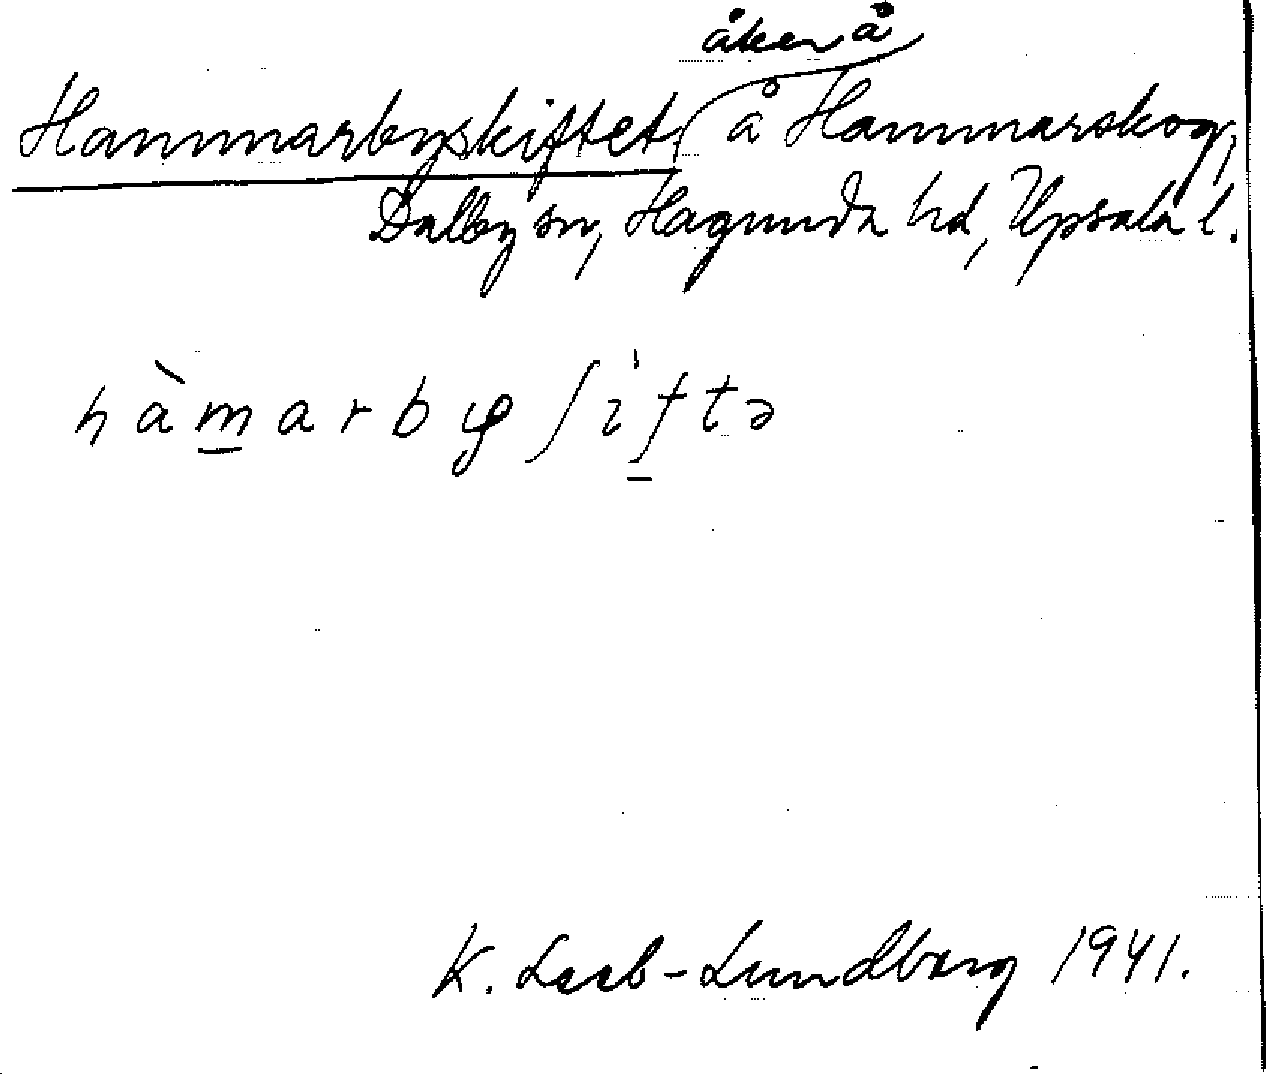 åker å
Hammarbyskiftet, å Hammarskog,
Dalby sn, Hagunda hd, Upsala l.
hàmarbyʃiftə
K. Leeb-Lundberg 1941.